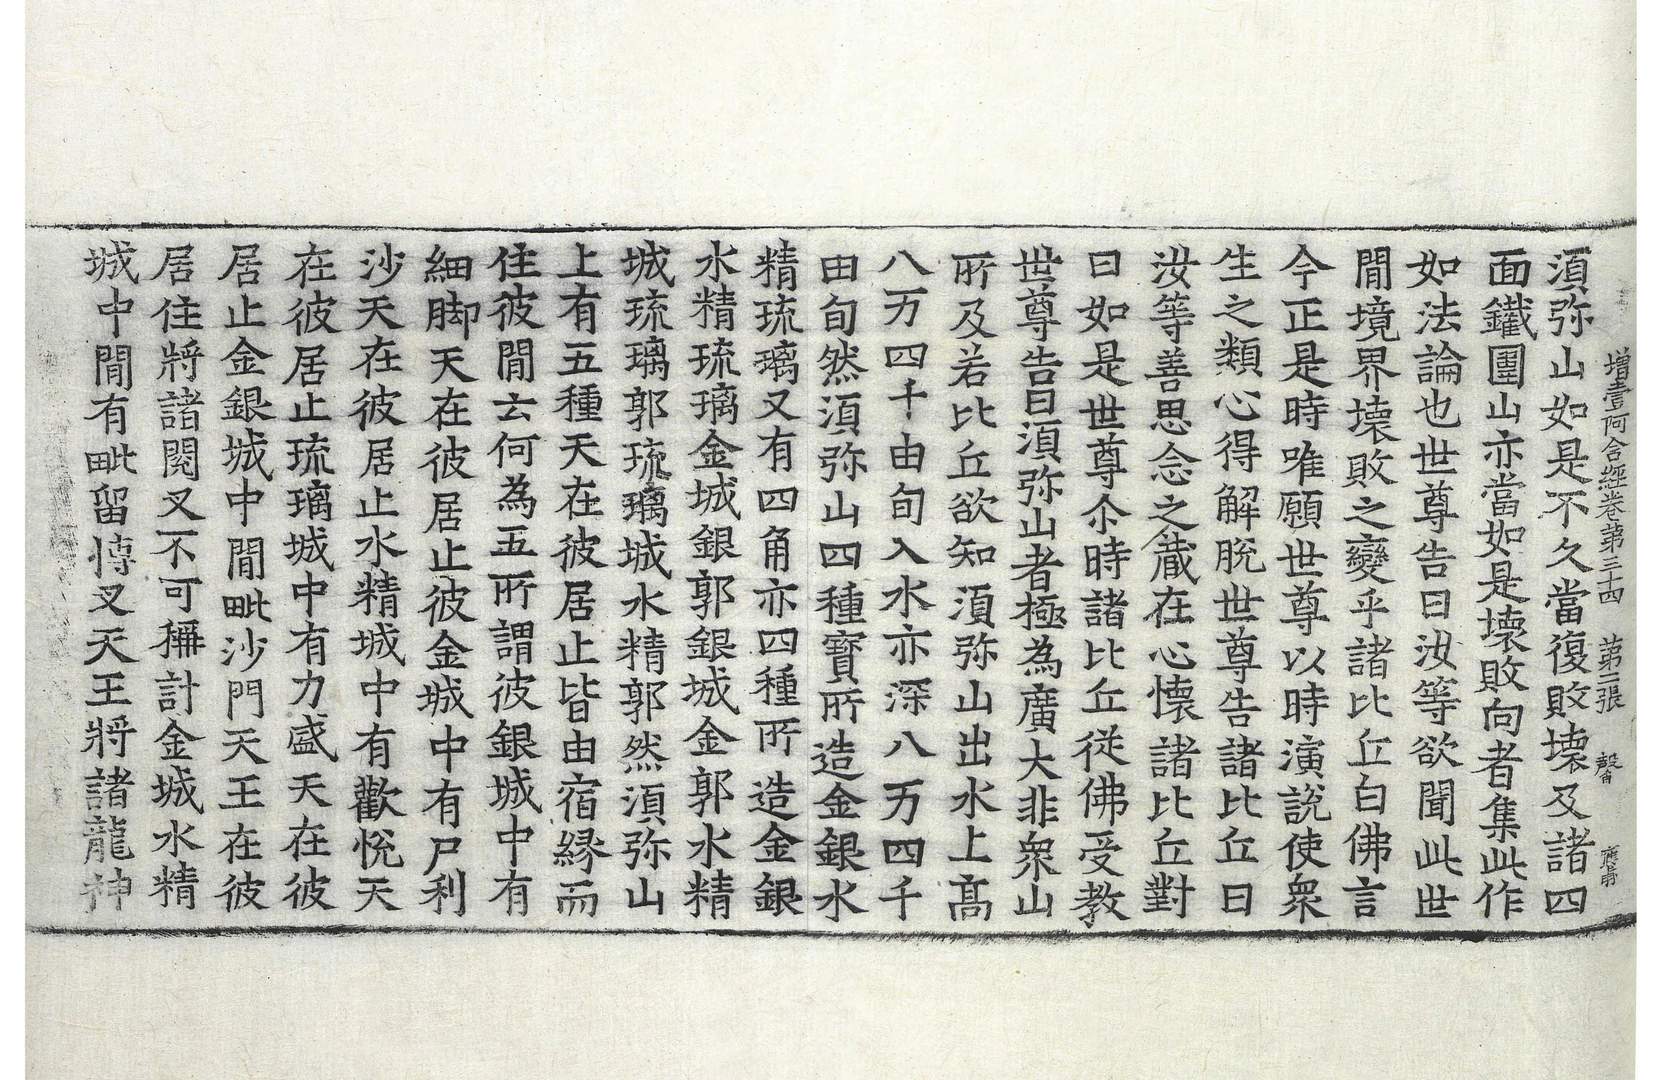 增壹阿含經卷第三十四 第二張 罄
須弥山如是不久當復敗壞及諸四
面鐵圍山亦當如是壞敗向者集此作
如法論也世尊告曰汝等欲聞此世
閒境界壞敗之變乎諸比丘白佛言
今正是時唯願世尊以時演說使衆
生之類心得解脫世尊告諸比丘曰
汝等善思念之藏在心懷諸比丘對
曰如是世尊尒時諸比丘從佛受教
世尊告曰湏弥山者極為廣大非衆山
所及若比丘欲知湏弥山出水上髙
八万四千由旬入水亦深八万四千
由旬然湏弥山四種寶所造金銀水
精琉璃又有四角亦四種所造金銀
水精琉璃金城銀郭銀城金郭水精
城琉璃郭琉璃城水精郭然湏弥山
上有五種天在彼居止皆由宿緣而
住彼閒云何為五所謂彼銀城中有
細脚天在彼居止彼金城中有尸利
沙天在彼居止水精城中有歡悅天
在彼居止琉璃城中有力盛天在彼
居止金銀城中閒毗沙門天王在彼
居住將諸閱叉不可稱計金城水精
城中閒有毗留愽叉天王將諸龍神